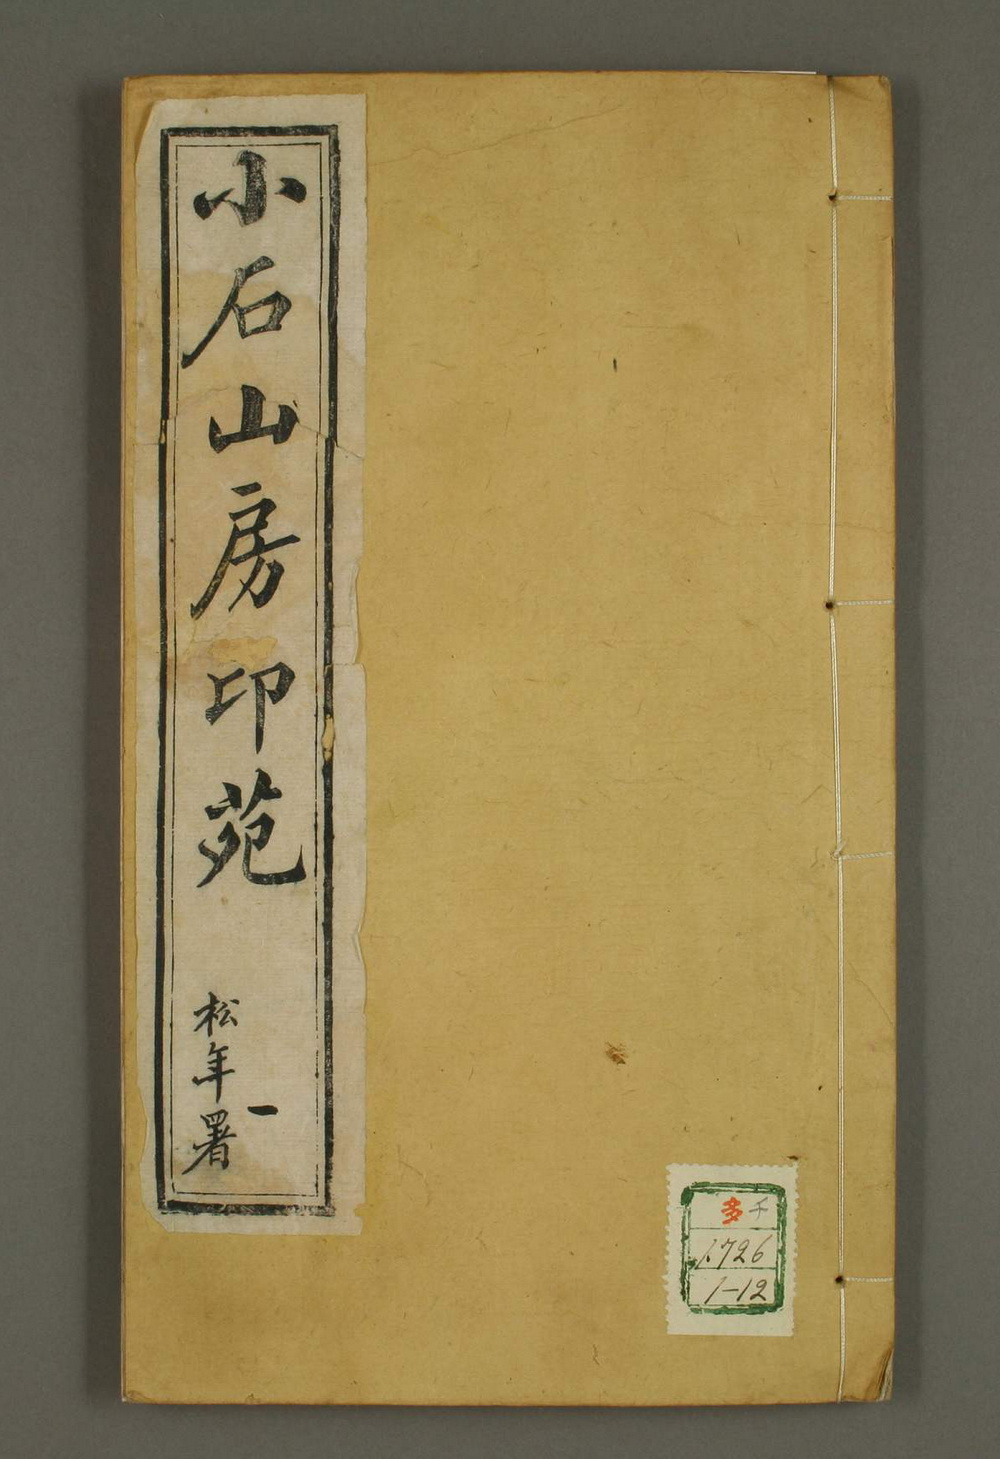 小石山房印苑
松年署
一
チ
多
1.726
1-12